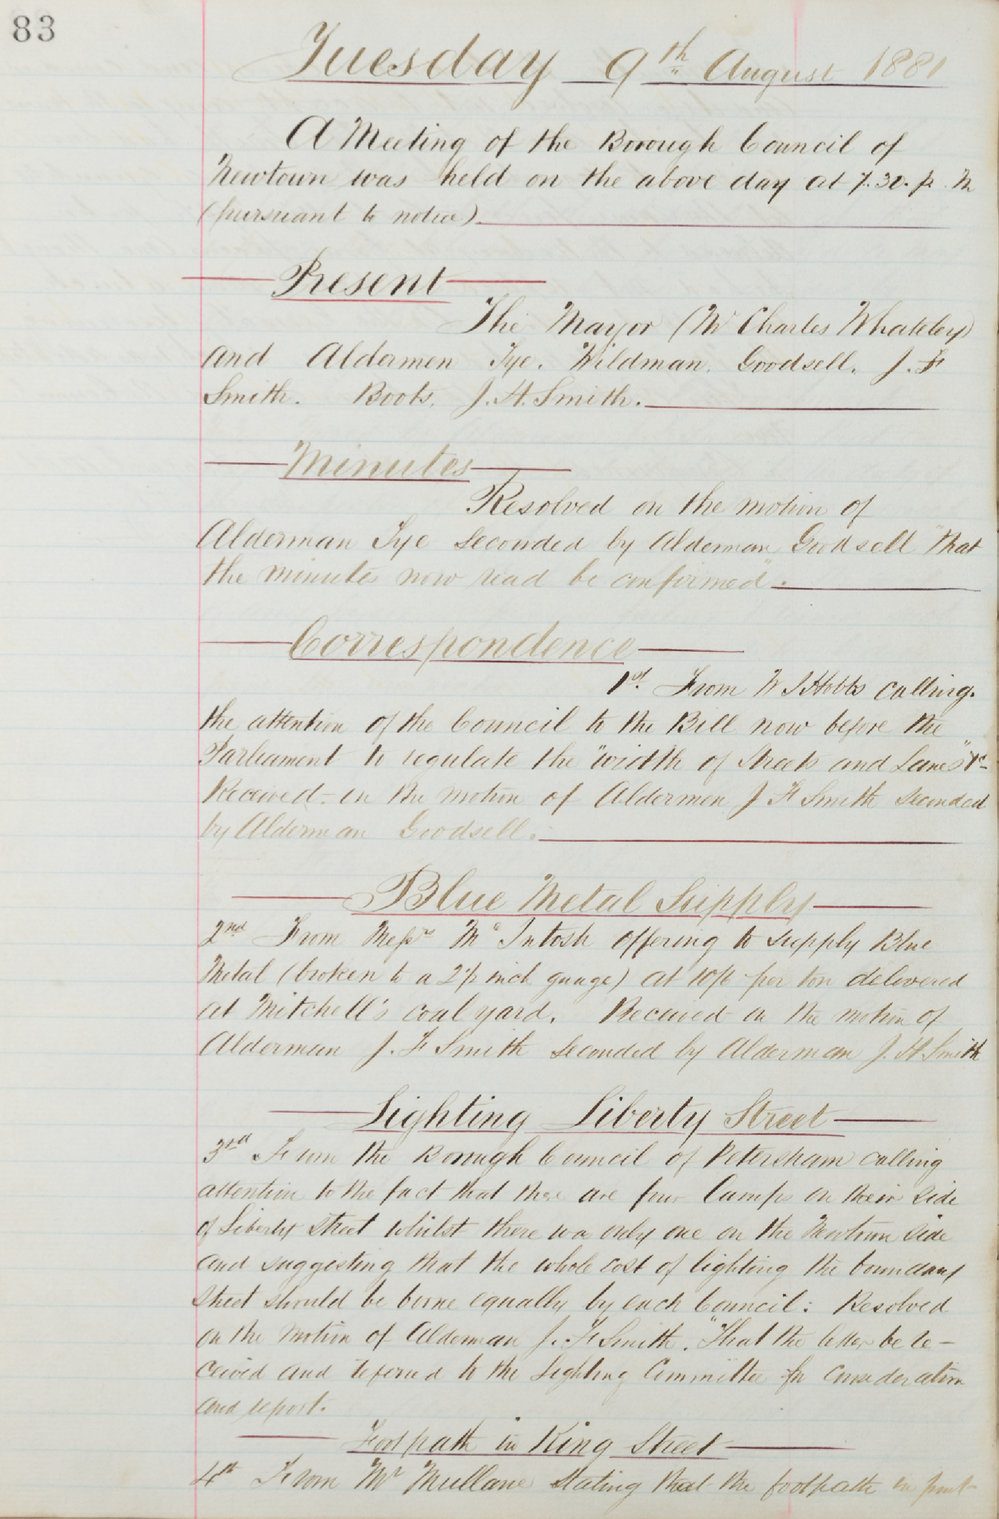 83
Tuesday 9th August 1881
A Meeting of the Borough Council of
Newtown was held on the above day at 7.30. p. M
(pursuant to notice)
Present
The Mayor (Mr Charles Whateley)
and Aldermen Tye. Wildman. Goodsell. J. F
Smith. Boots. J. H. Smith.
Minutes
Resolved on the motion of
Alderman Tye seconded by Alderman Goodsell "that
the minutes now read be confirmed".
Correspondence
1st. From W J Hobbs calling
the attention of the Council to the Bill now before the
Parliament to regulate the "width of Streets and Lanes" &c
Received on the motion of Aldermen J F Smith seconded
by Alderman Goodsell.
Blue Metal Supply
2nd From Messrs McIntosh offering to supply Blue
Metal (broken to a 2½ inch guage) at 10/6 per ton delivered
at Mitchell's coal yard. Received on the motion of
Alderman J. F Smith seconded by Alderman J. H. Smith
Lighting Liberty Street
3rd From the Borough Council of Petersham calling
attention to the fact that there are four Lamps on their side
of Liberty Street whilst there was only one on the Newtown side
and suggesting that the whole cost of lighting the boundary
Street should be borne equally by each Council: Resolved
on the motion of Alderman J. F Smith. "That the letter be re-
ceived and referred to the Lighting Committee for consideration
and report.
Footpath in King Street
4th From Mr Mullane stating that the footpath in front